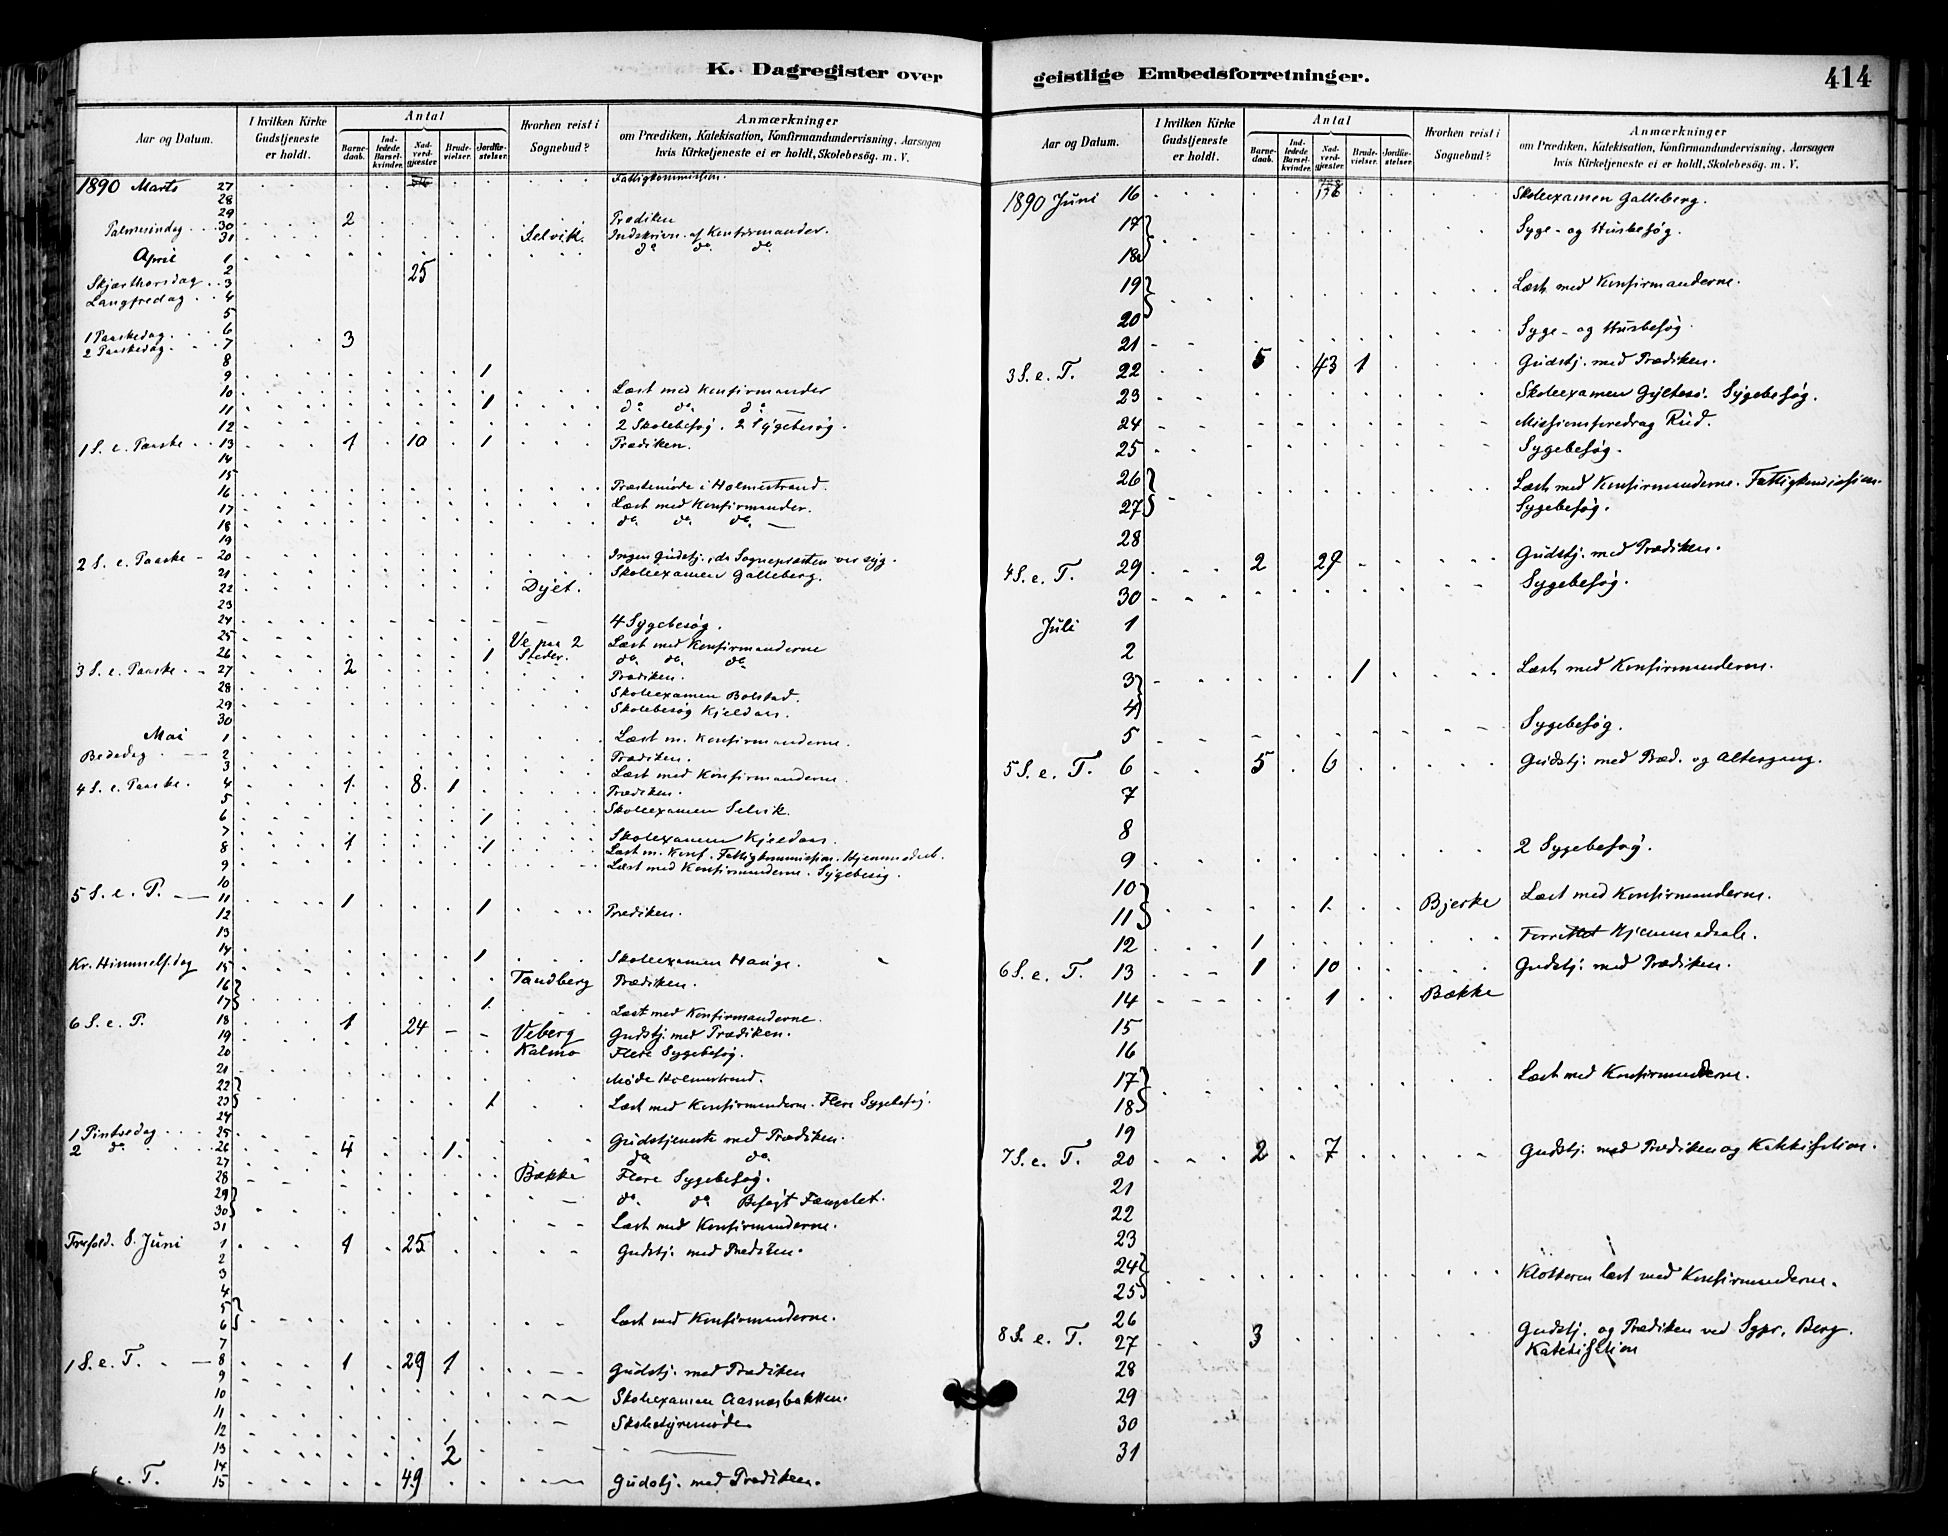 K. Dagregister over
Aar og Datum.
I hvilken Kirke Gudstjeneste er holdt.
Antal
Barnedaab.
Indledede Barselkvinder.
Nadverdgjester
Brudevielser.
Jordfæstelser.
Hvorhen reist i Sognebud?
Anmærkninger
om Prædiken, Katekisation, Konfirmandundervisning, Aarsagen
hvis Kirketjeneste ei er holdt, Skolebesøg. m. V.
1890 Marts 27 Fattigkommission.
28
29
Palmesindag 30 2 Prædiken
31 Selvik. Indskrivn. af Konfirmander.
April 1 do do do
2
Skjærthorsdag 3 25
Langfredag 4
5
1 Paaskedag 6
2 Paaskedag 7 3
8
9 1
10 Læst med Konfirmander
11 1 do do do
12 2 Skolebesøg. 2 Sygebesøg.
1 S. e. Paaske 13 1 10 1 Prædiken.
14
15
16 Præstemøde i Holmestrand.
17 Læst med Konfirmander.
18 do do do
19
2 S. e. Paaske 20 Ingen Gudstj., da Sognepræsten var syg.
21 Skoleexamen Galleberg.
22 Dyet.
23
24 4 Sygebesøg.
25 Ve paa 2 Læst med Konfirmanderne
26 1 Steder. do do do
3 S. e. Paaske 27 2 Prædiken.
28 Skoleexamen Bolstad.
29 Skolebesøg Kjeldaas.
30
Mai 1 Læst m. Konfirmanderne.
Bededag 2 Prædiken.
3 Læst med Konfirmanderne.
4 S. e. Paaske. 4 1 8 1 Prædiken.
5 Skoleexamen Selvik.
6 1
7 Skoleexamen Kjeldaas.
8 1 1 Læst m. Konf. Fattigkommission. Hjemmedaab.
9 Læst med Konfirmanderne. Sygebesøg.
10
5 S. e. P. 11 1 1 Prædiken.
12
13
14 1 Skoleexamen Hauge.
Kr. Himmelf.dag 15 Tandberg Prædiken.
16
17 1 Læst med Konfirmanderne.
6 S. e. P. 18 1 24 Veberg Gudstj. med Prædiken.
19 Kalmo Flere Sygebesøg.
20
21 Møde Holmestrand.
22
23 1 Læst med Konfirmanderne. Flere Sygebesøg.
24
1 Pintsedag 25 Gudstjeneste med Prædiken.
2 do 26 4 1 do do
27 Bække Flere Sygebesøg.
28 do do Besøgt Fængslet.
29
30 Læst med Konfirmanderne.
31
Trefold. S. Juni 1 1 25 Gudstj. med Prædiken.
2
3
4
5
6 Læst med Konfirmanderne.
7
1 S. e. T. 8 1 29 1 Gudstj. med Prædiken
9
10 Skoleexamen Aasnæsbakken.
11 Skolestyremøde
12 1
13 2
14
e. T. 15 49 Gudstj. med Prædiken.
geistlige Embedsforretninger.
414
Aar og Datum.
I hvilken Kirke Gudstjeneste er holdt.
Antal
Barnedaab.
Indledede Barselkvinder.
Nadverdgjester
Brudevielser.
Jordfæstelser.
Hvorhen reist i Sognebud?
Anmærkninger
om Prædiken, Katekisation, Konfirmandundervisning, Aarsagen
hvis Kirketjeneste ei er holdt, Skolebesøg. m. V.
1890 Juni 16 Skoleexamen Galleberg.
17 Syge- og Husbesøg.
18
19 Læst med Konfirmanderne.
20 Syge- og Husbesøg.
21
3 S. e. T. 22 5 43 1 Gudstj. med Prædiken.
23 Skoleexamen Gyltesø. Sygebesøg.
24 Missionsforedrag Rud.
25 Sygebesøg.
26 Læst med Konfirmanderne. Fattigkomission.
27 Sygebesøg.
28
4 S. e. T. 29 2 29 Gudstj. med Prædiken.
30 Sygebesøg.
Juli 1
2
3 1 Læst med Konfirmanderne.
4
5 Sygebesøg.
5 S. e. T. 6 5 6 Gudstj. med Præd. og Altergang.
7
8
9 2 Sygebesøg.
10
11 1 Bjerke Læst med Konfirmanderne.
12 1 Forrettet Hjemmedaab.
6 S. e. T. 13 1 10 Gudstj. med Prædiken.
14 1 Bække
15
16
17 Læst med Konfirmanderne.
18
19
7 S. e. T. 20 2 7 Gudstj. med Prædiken og Katekisation.
21
22
23
24 læst med Konfirmanderne.
25
26
8 S. e. T. 27 3 Gudstj. og Prædiken ved Sgpr. Berg.
Katekisation
28
29
30
31